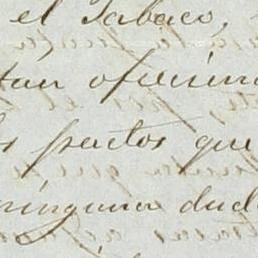 el Tabaco,
tan ofreci
s pactos que
ninguna dud